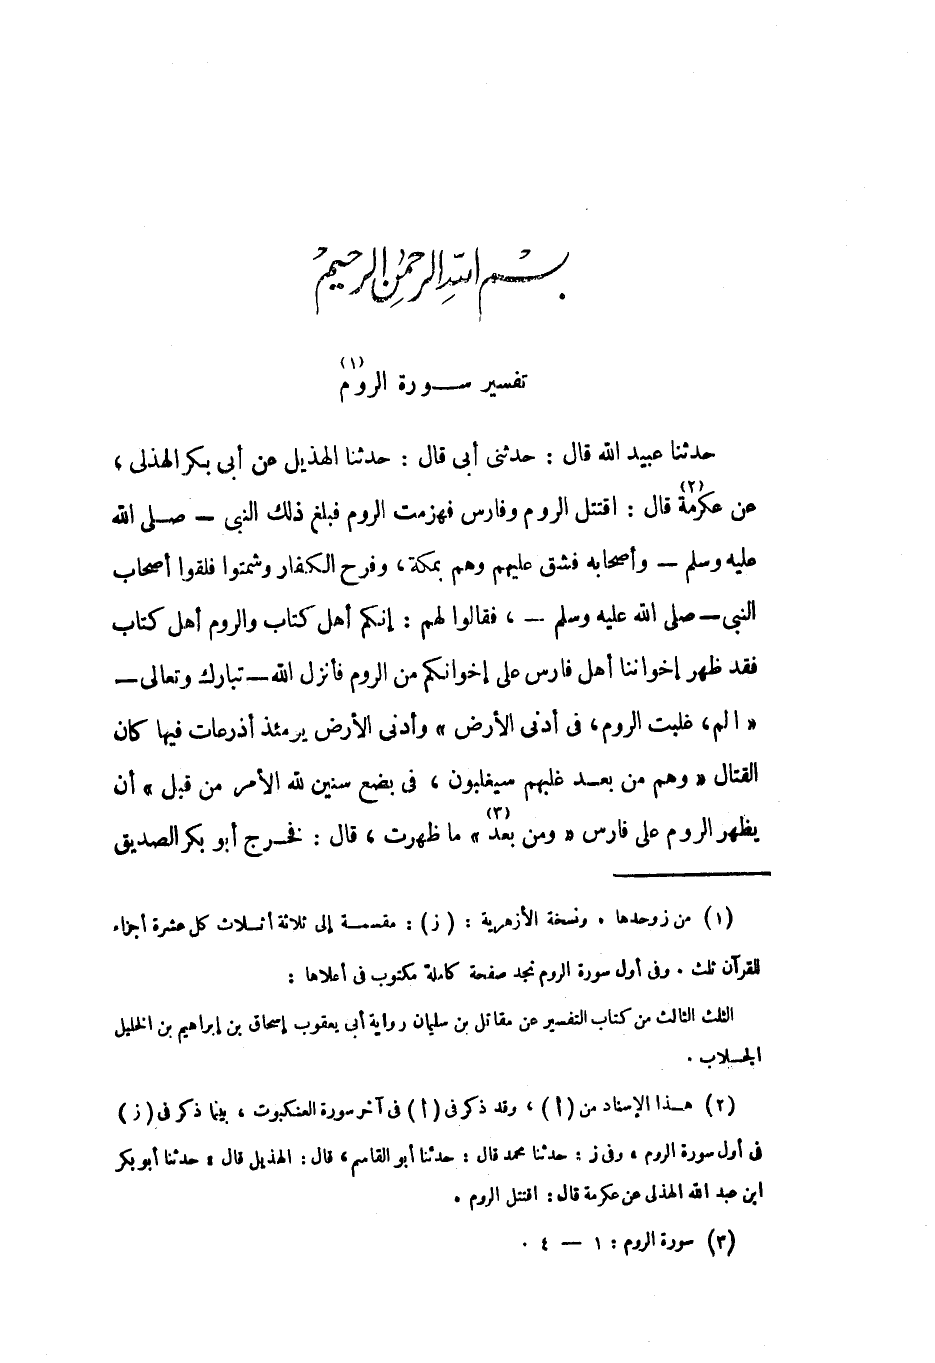 بسم الله الرحمن الرحيم
تفسير سورة الروم (١)
حدثنا عبيد الله قال : حدثنى أبى قال : حدثنا الهذيل عن أبى بكر الهذلى ،
عن عكرمة (٢) قال : اقتتل الروم وفارس فهزمت الروم فبلغ ذلك النبى — صلى الله
عليه وسلم — وأصحابه فشق عليهم وهم بمكة ، وفرح الكفار وشمتوا فلقوا أصحاب
النبى — صلى الله عليه وسلم — ، فقالوا لهم : إنكم أهل كتاب والروم أهل كتاب
فقد ظهر إخواننا أهل فارس على إخوانكم من الروم فأنزل الله — تبارك وتعالى —
« الم ، غلبت الروم ، فى أدنى الأرض » وأدنى الأرض يومئذ أذرعات فيها كان
القتال « وهم من بعد غلبهم سيغلبون ، فى بضع سنين لله الأمر من قبل » أن
يظهر الروم على فارس « ومن بعد (٣) » ما ظهرت ، قال : فخرج أبو بكر الصديق
(١) من ز وحدها . ونسخة الأزهرية : (ز) : مقسمة إلى ثلاثة أثلاث كل عشرة أجزاء
للقرآن ثلث . وفى أول سورة الروم نجد صفحة كاملة مكتوب فى أعلاها :
الثلث الثالث من كتاب التفسير عن مقاتل بن سليمان رواية أبى يعقوب إسحاق بن إبراهيم بن الخليل
الجلاب .
(٢) هذا الإسناد من (أ) ، وقد ذكر فى (أ) فى آخر سورة العنكبوت ، بينما ذكر فى (ز)
فى أول سورة الروم ، وفى ز : حدثنا محمد قال : حدثنا أبو القاسم ، قال : الهذيل قال : حدثنا أبو بكر
ابن عبد الله الهذلى عن عكرمة قال : اقتتل الروم .
(٣) سورة الروم : ١ — ٤ .